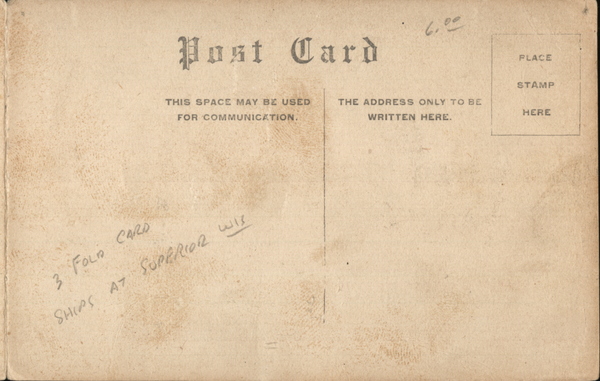 6.00
Post Card
PLACE
STAMP
HERE
THIS SPACE MAY BE USED
FOR COMMUNICATION.
THE ADDRESS ONLY TO BE
WRITTEN HERE.
3 FOLD CARD
SHIPS AT SUPERIOR WIS